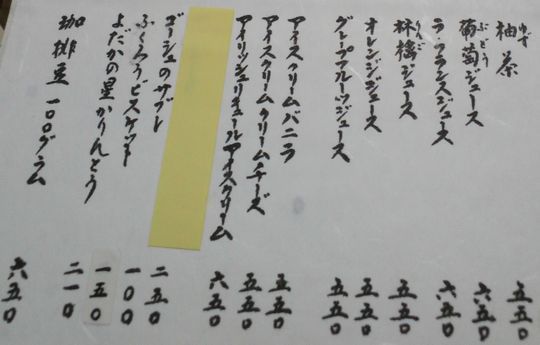 柚茶 五五0
ゆず
葡萄ジュース 六五0
ぶどう
ラ・フランスジュース 六五0
林檎ジュース 五五0
りんご
オレンジジュース 五五0
グレープフルーツジュース 五五0
アイスクリームバニラ 五五0
アイスクリームクリームチーズ 五五0
アイリッシュリキュールアイスクリーム 六五0
ゴーシュのサブレ 二五0
ふくろうビスケット 一00
よだかの星かりんとう 一五0
二一0
珈琲豆 一00グラム 六五0